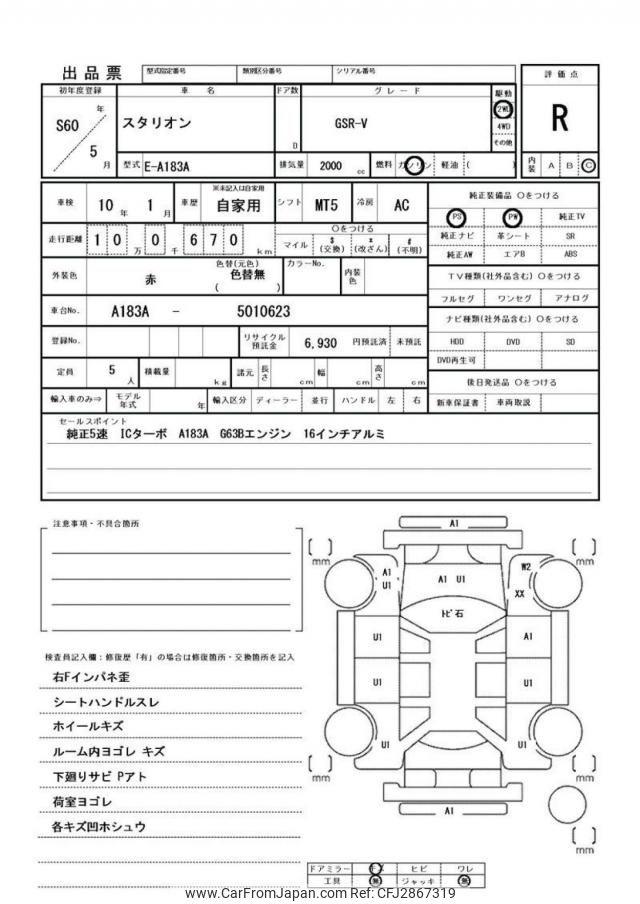 出品票 型式指定番号 類別区分番号 シリアル番号
初年度登録 車名 ドア数 グレード 駆動 評価点
S60 年 スタリオン GSR-V 2WD R
4WD
5 月 D その他
型式 E-A183A 排気量 2000 cc 燃料 ガソリン 軽油 ( ) 内装 A B C
※未記入は自家用
車検 10 年 1 月 車歴 自家用 シフト MT5 冷房 AC 純正装備品 〇をつける
PS PW 純正TV
走行距離 1 0 万 0 千 6 7 0 km 〇をつける
マイル $ (交換) * (改ざん) # (不明)
純正ナビ 革シート SR
純正AW エアB ABS
外装色 赤 色替(元色) 色替無 ( ) カラーNo. 内装色
TV種類(社外品含む) 〇をつける
フルセグ ワンセグ アナログ
車台No. A183A - 5010623
ナビ種類(社外品含む) 〇をつける
登録No. リサイクル預託金 6,930 円預託済 未預託 HDD DVD SD
DVD再生可
定員 5 人 積載量 kg 諸元 長さ cm 幅 cm 高さ cm
後日発送品 〇をつける
輸入車のみ⇒ モデル年式 年 輸入区分 ディーラー 並行 ハンドル 左 右 新車保証書 車両取説
セールスポイント
純正5速 ICターボ A183A G63Bエンジン 16インチアルミ
注意事項・不具合箇所
検査員記入欄：修復歴「有」の場合は修復箇所・交換箇所を記入
右Fインパネ歪
シートハンドルスレ
ホイールキズ
ルーム内ヨゴレ キズ
下廻りサビ Pアト
荷室ヨゴレ
各キズ凹ホシュウ
A1
[ ] mm [ ] mm
A1 U1 A1 U1 W2 XX
トビ石
U1 A1
U1 U1
U1 U1
[ ] mm [ ] mm
A1
[ ] mm
ドアミラー ヒビ ワレ
工具 無 ジャッキ 無
www.CarFromJapan.com Ref: CFJ2867319